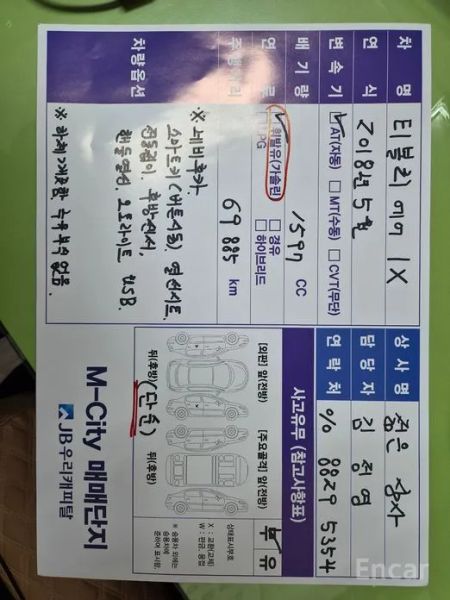 차 명 티볼리 에어 IX
연 식 2018년 5월
변속기 ☑AT(자동) ☐MT(수동) ☐CVT(무단)
배기량 1597 CC
연 료 ☑휘발유(가솔린) ☐경유
☐LPG ☐하이브리드
주행거리 69885 km
차량옵션
※ 네비후카.
스마트키(버튼시동). 열선시트.
전동접이. 후방센서.
핸들열선. 오토라이트 USB.
※ 하체개끗함. 누유 부식 없음.
상사명 젊은 상사
담당자 김정영
연락처 % 8829 5354
사고유무 (참고사항표) 무 유
[외판] 앞(전방)
[주요골격] 앞(전방)
뒤(후방)
(단순)
뒤(후방)
상태표시부호
X : 교환(교체)
W : 판금, 용접
※ 승용차 외에는
승용차에
준하여 표시함.
M-City 매매단지
JB우리캐피탈
Encar